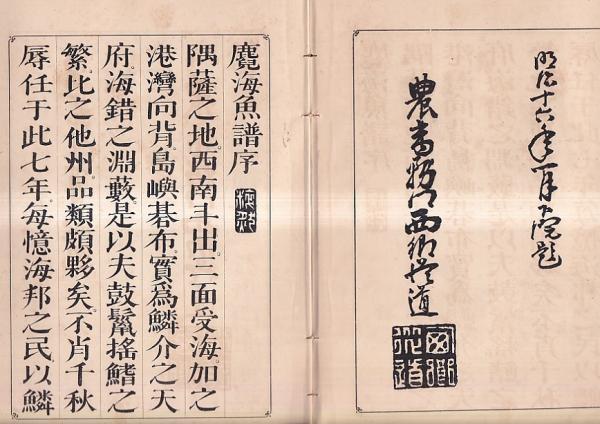 明治十六年一月下浣題
農商務卿西郷從道
西郷
從道
麑海魚譜序
隅薩之地。西南斗出。三面受海。加之
港灣向背。島嶼碁布。實爲鱗介之天
府。海錯之淵藪。是以夫鼓鬣搖鰭之
繁。比之他州。品類頗夥矣。不肖千秋
辱任于此七年。每憶海邦之民以鱗